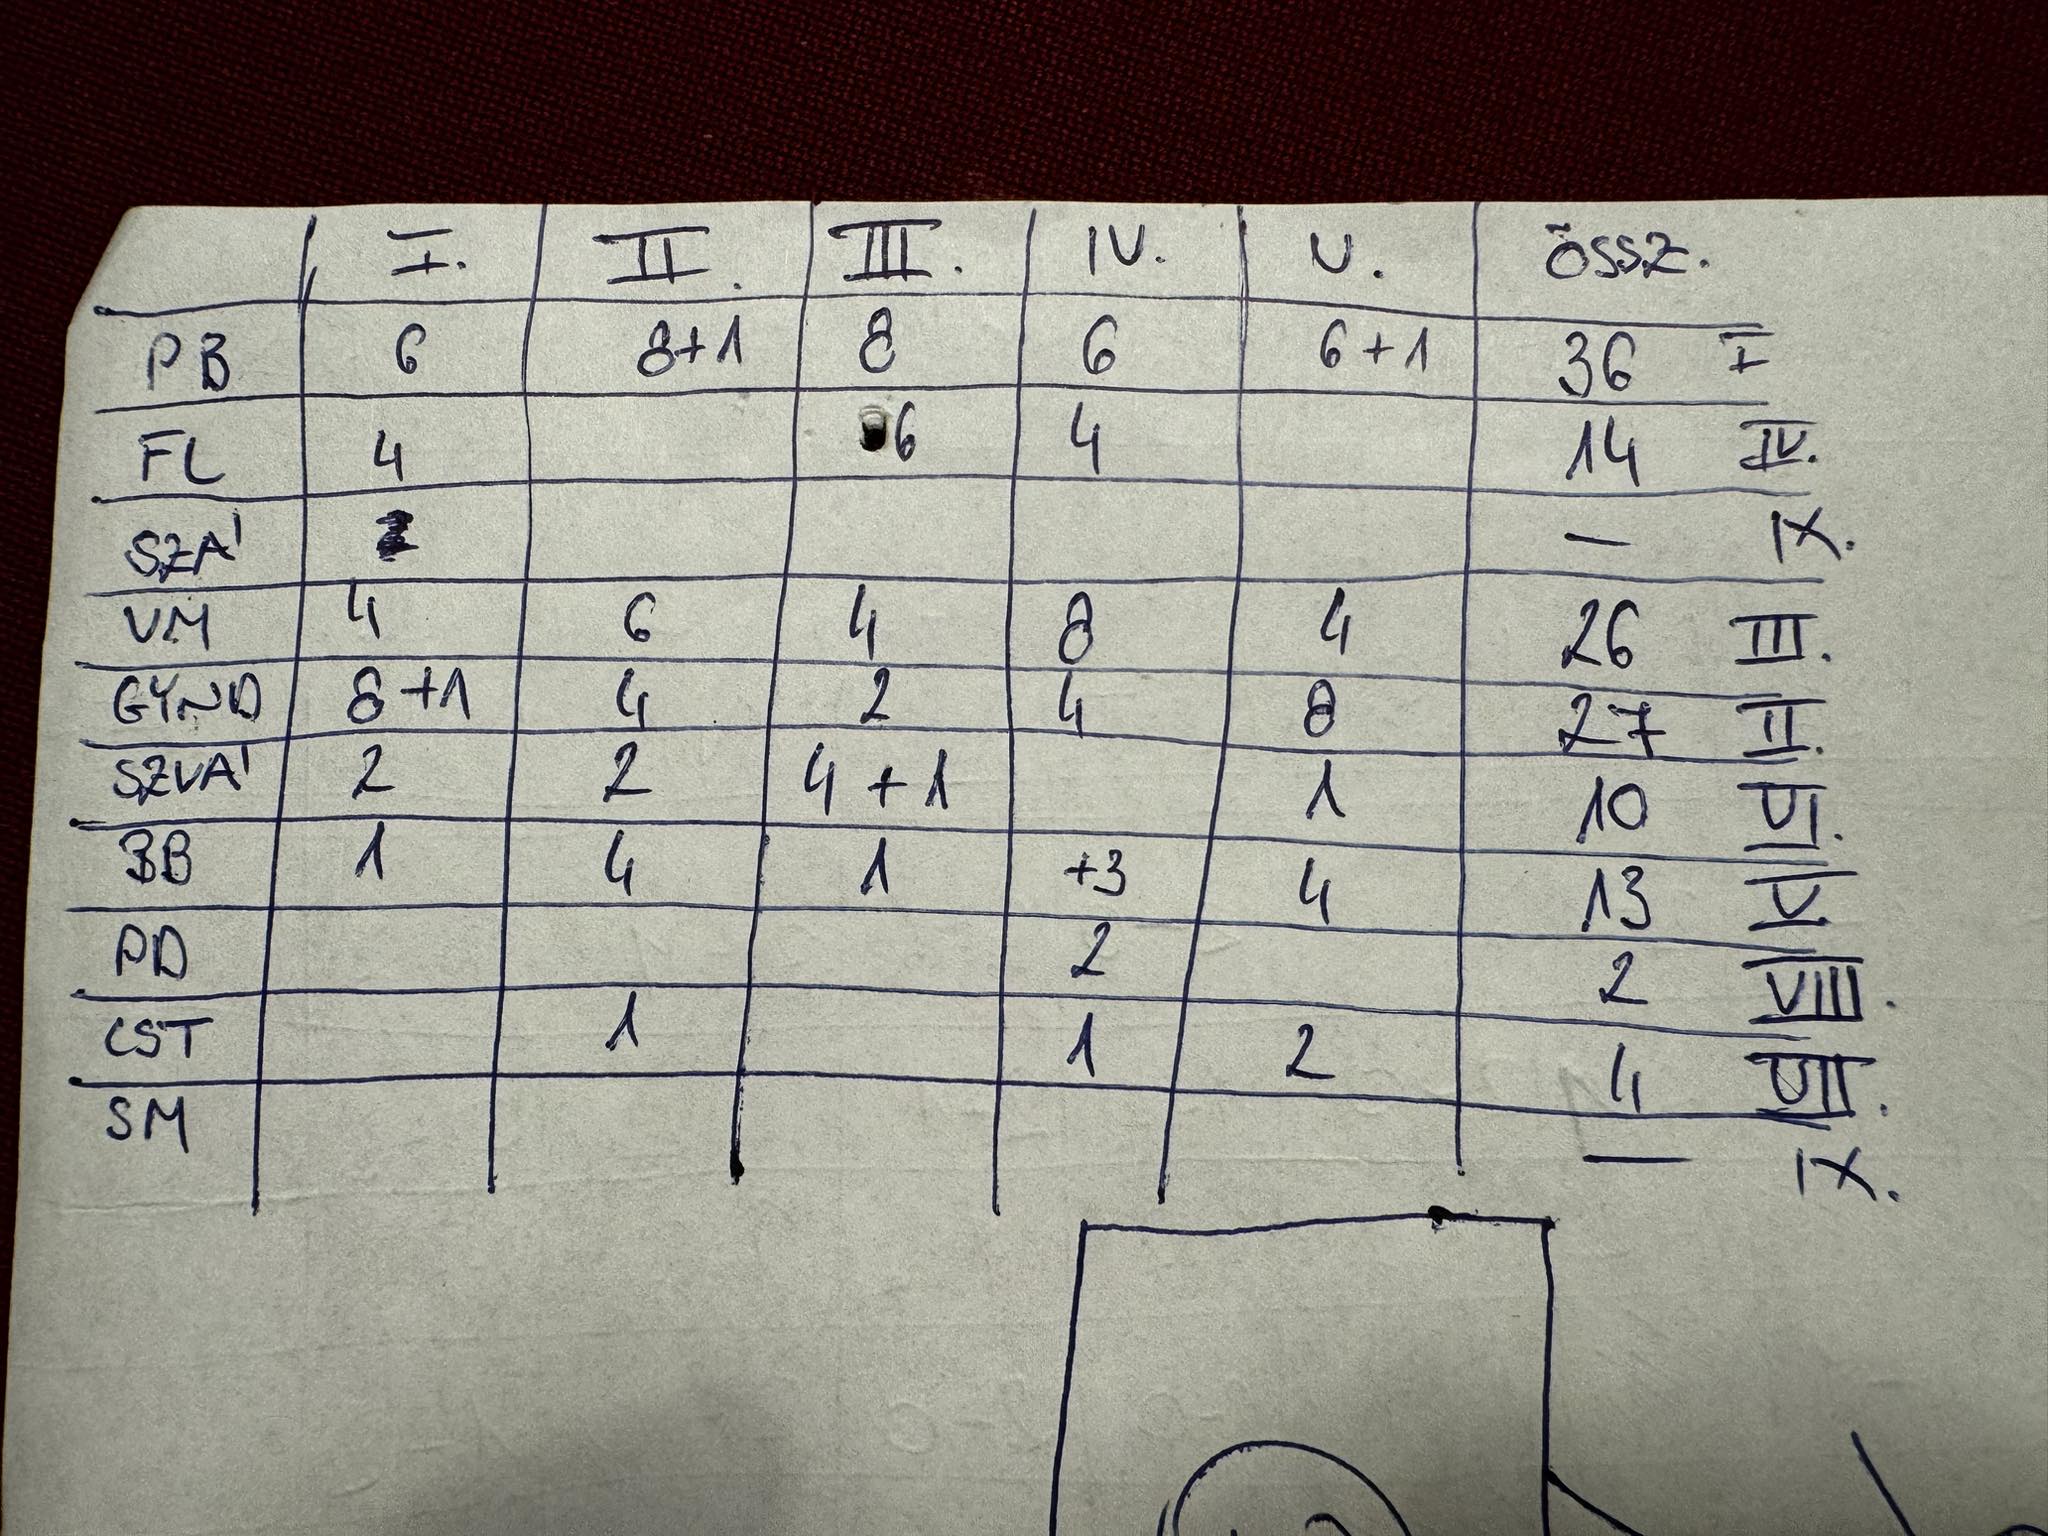 I. II. III. IV. V. ÖSSZ.
PB 6 8+1 8 6 6+1 36 I
FL 4 6 4 14 IV.
SZÁ — IX.
VM 4 6 4 8 4 26 III.
GYND 8+1 4 2 4 8 27 II.
SZVÁ 2 2 4+1 1 10 VI.
BB 1 4 1 +3 4 13 V
PD 2 2 VIII.
CST 1 1 2 4 VII.
SM — IX.